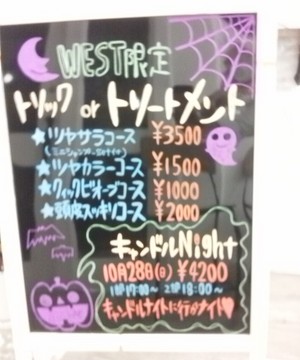 WEST限定
トリック or トリートメント
★ツヤサラコース ¥3500
★ツヤカラーコース ¥1500
★クイックビオープコース ¥1000
★頭皮スッキリコース ¥2000
キャンドルNight
10月28日(日) ¥4200
1部 17:00~ 2部 18:00~
キャンドルナイトに行かナイト♥